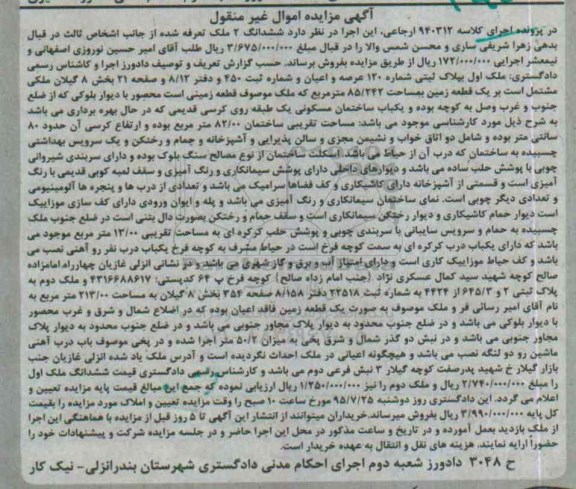 آگهی مزایده اموال غیر منقول
در پرونده اجرای کلاسه ۹۴۰۳۱۲ ارجاعی، این اجرا در نظر دارد ششدانگ ۲ ملک تعرفه شده از جانب اشخاص ثالث در قبال
بدهی زهرا شریفی ساری و محسن شمس والا را در قبال مبلغ ۳/۶۷۵/۰۰۰/۰۰۰ ریال طلب آقای امیر حسین نوروزی اصفهانی و
نیمعشر اجرایی ۱۷۲/۰۰۰/۰۰۰ ریال از طریق مزایده بفروش برساند. حسب گزارش تعریف و توصیف دادورز اجرا و کارشناس رسمی
دادگستری: ملک اول بپلاک ثبتی شماره ۱۲۰ عرصه و اعیان و شماره ثبت ۴۵۰ و دفتر ۸/۱۲ و صفحه ۲۱ بخش ۸ گیلان ملکی
مشتمل است بر یک قطعه زمین بمساحت ۸۵/۲۴۲ مترمربع که ملک موصوف قطعه زمینی است محصور با دیوار بلوکی که از ضلع
جنوب و غرب وصل به کوچه بوده و یکباب ساختمان مسکونی یک طبقه روی کرسی قدیمی که در حال بهره برداری می باشد
به شرح ذیل مورد کارشناسی موجود می باشد: مساحت تقریبی ساختمان ۸۲/۰۰ متر مربع بوده و ارتفاع کرسی آن حدود ۸۰
سانتی متر بوده و شامل دو اتاق خواب و نشیمن مجزی و سالن پذیرایی و آشپزخانه و حمام و رختکن و یک سرویس بهداشتی
چسبیده به ساختمان که درب آن از حیاط می باشد اسکلت ساختمان از نوع مصالح سنگ بلوک بوده و دارای سربندی شیروانی
چوبی با پوشش حلب ساده می باشد و دیوارهای داخلی دارای پوشش سیمانکاری و رنگ آمیزی و سقف لمبه کوبی قدیمی با رنگ
آمیزی است و قسمتی از آشپزخانه دارای کاشیکاری و کف فضاها سرامیک می باشد و تعدادی از درب ها و پنجره ها آلومینیومی
و تعدادی دیگر چوبی است. نمای ساختمان سیمانکاری و رنگ آمیزی می باشد و پله و ایوان ورودی دارای کف سازی موزاییک
است دیوار حمام کاشیکاری و دیوار رختکن سیمانکاری است و سقف حمام و رختکن بصورت دال بتنی است در ضلع جنوب ملک
چسبیده به حمام و سرویس سایبانی با سربندی چوبی و پوشش حلب کرکره ای به مساحت تقریبی ۱۳/۰۰ متر مربع موجود می
باشد که دارای یکباب درب کرکره ای به سمت کوچه فرخ است در حیاط مشرف به کوچه فرخ یکباب درب نفر رو آهنی نصب می
باشد و کف حیاط موزاییک کاری است و دارای امتیاز آب و برق و گاز شهری می باشد و در نشانی انزلی غازیان چهارراه امامزاده
صالح کوچه شهید سید کمال عسکری نژاد (جنب امام زداه صالح) کوچه فرخ پ ۶۴ کدپستی: ۴۳۱۶۶۸۸۶۱۷ و ملک دوم به
پلاک ثبتی ۲ و ۶۴۵/۳ از ۴۴۲۴ به شماره ثبت ۲۲۵۱۸ دفتر ۸/۱۵۸ صفحه ۳۵۴ بخش ۸ گیلان به مساحت ۲۱۳/۰۰ متر مربع به
نام آقای امیر رسانی فر و ملک موصوف به صورت یک قطعه زمین فاقد اعیان بوده که در اضلاع شمال و شرق و غرب محصور
با دیوار بلوکی می باشد و در ضلع جنوب محدود به دیوار پلاک مجاور جنوبی می باشد و در ضلع جنوب محدود به دیوار پلاک
مجاور جنوبی می باشد و در نبش دو گذر شمال و شرق پخی به میزان ۵۰/۲ متر اجرا شده و در پخی موصوف باب درب آهنی
ماشین رو دو لنگه نصب می باشد و هیچگونه اعیانی در ملک احداث نگردیده است و آدرس ملک یاد شده انزلی غازیان جنب
بازار گیلار خ شهید پدرصفت کوچه گیلار ۳ نبش فرعی دوم می باشد و کارشناس رسمی دادگستری قیمت ششدانگ ملک اول
را مبلغ ۲/۷۴۰/۰۰۰/۰۰۰ ریال و ملک دوم را نیز ۱/۲۵۰/۰۰۰/۰۰۰ ریال ارزیابی نموده که جمع این مبالغ قیمت پایه مزایده تعیین و
اعلام می گردد. این دادگستری روز دوشنبه ۹۵/۷/۲۵ مورخ ساعت ۱۰ صبح را وقت مزایده تعیین و املاک مورد مزایده را بقیمت
کل پایه ۳/۹۹۰/۰۰۰/۰۰۰ ریال بفروش میرساند.خریداران میتوانند از انتشار این آگهی تا ۵ روز قبل از مزایده با هماهنگی این اجرا
از ملک بازدید بعمل آمورده و در تاریخ و ساعت مذکور در محل این اجرا حاضر و در جلسه مزایده شرکت و پیشنهادات خود را
حضوراً ارایه نمایند. هزینه های نقل و انتقال به عهده خریدار است.
ح ۳۰۴۸ دادورز شعبه دوم اجرای احکام مدنی دادگستری شهرستان بندرانزلی- نیک کار